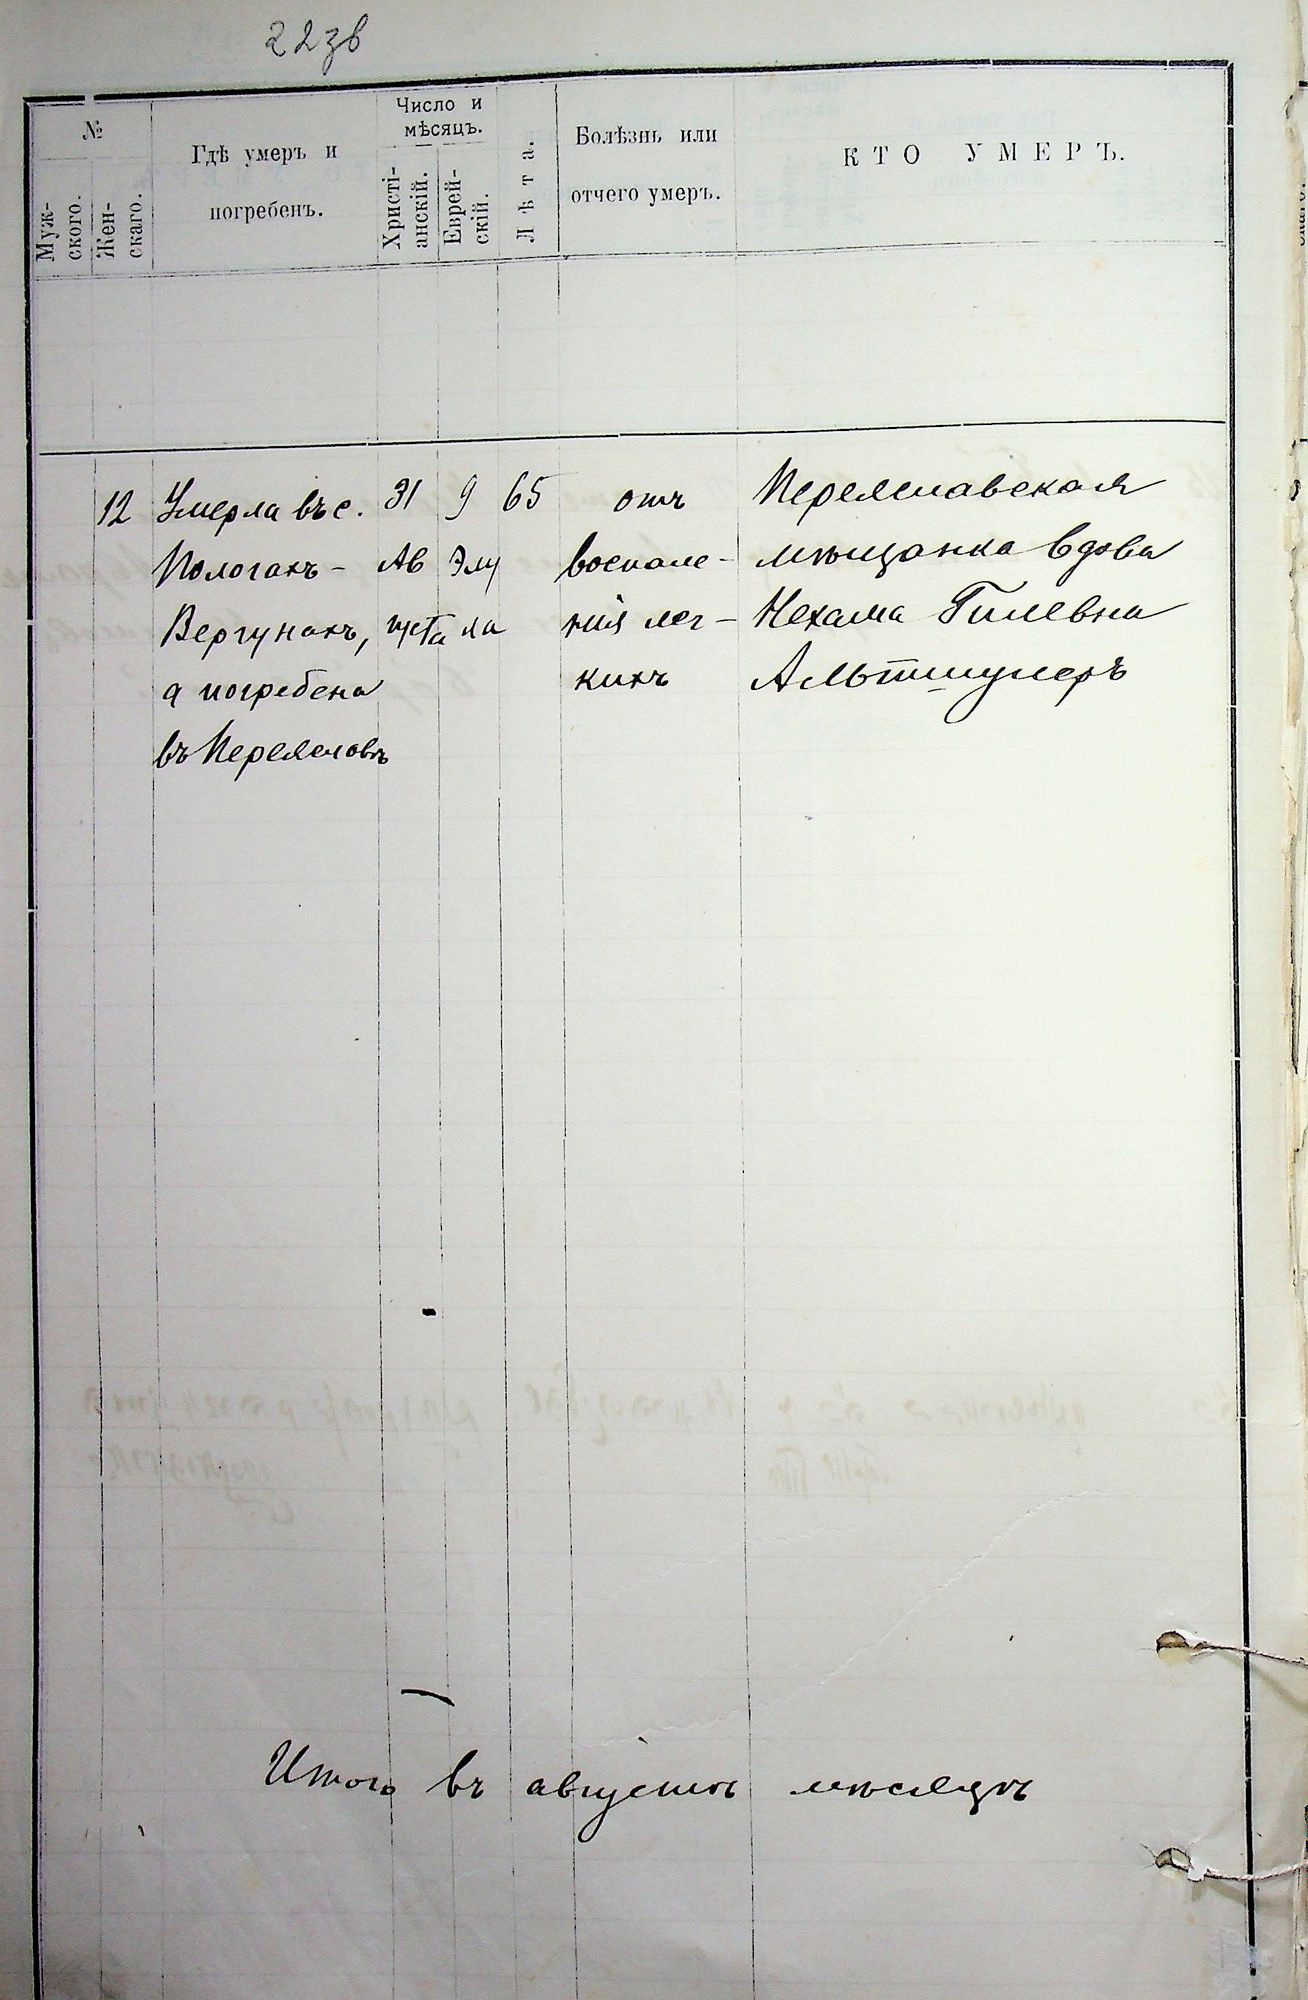 22зв
№
Муж-
ского.
Жен-
скаго.
Гдѣ умеръ и
погребенъ.
Число и
мѣсяцъ.
Христі-
анскій.
Еврей-
скій.
Лѣта.
Болѣзнь или
отчего умеръ.
КТО УМЕРЪ.
12 Умерла въ с. 31 9 65 отъ Переяславская
Пологахъ- Ав Элу воспале- мѣщанка вдова
Вергунахъ, густа ла нія лег- Нехама Гилевна
а погребена кихъ Альтшулеръ
въ Переяславѣ
Итого въ августѣ мѣсяцѣ